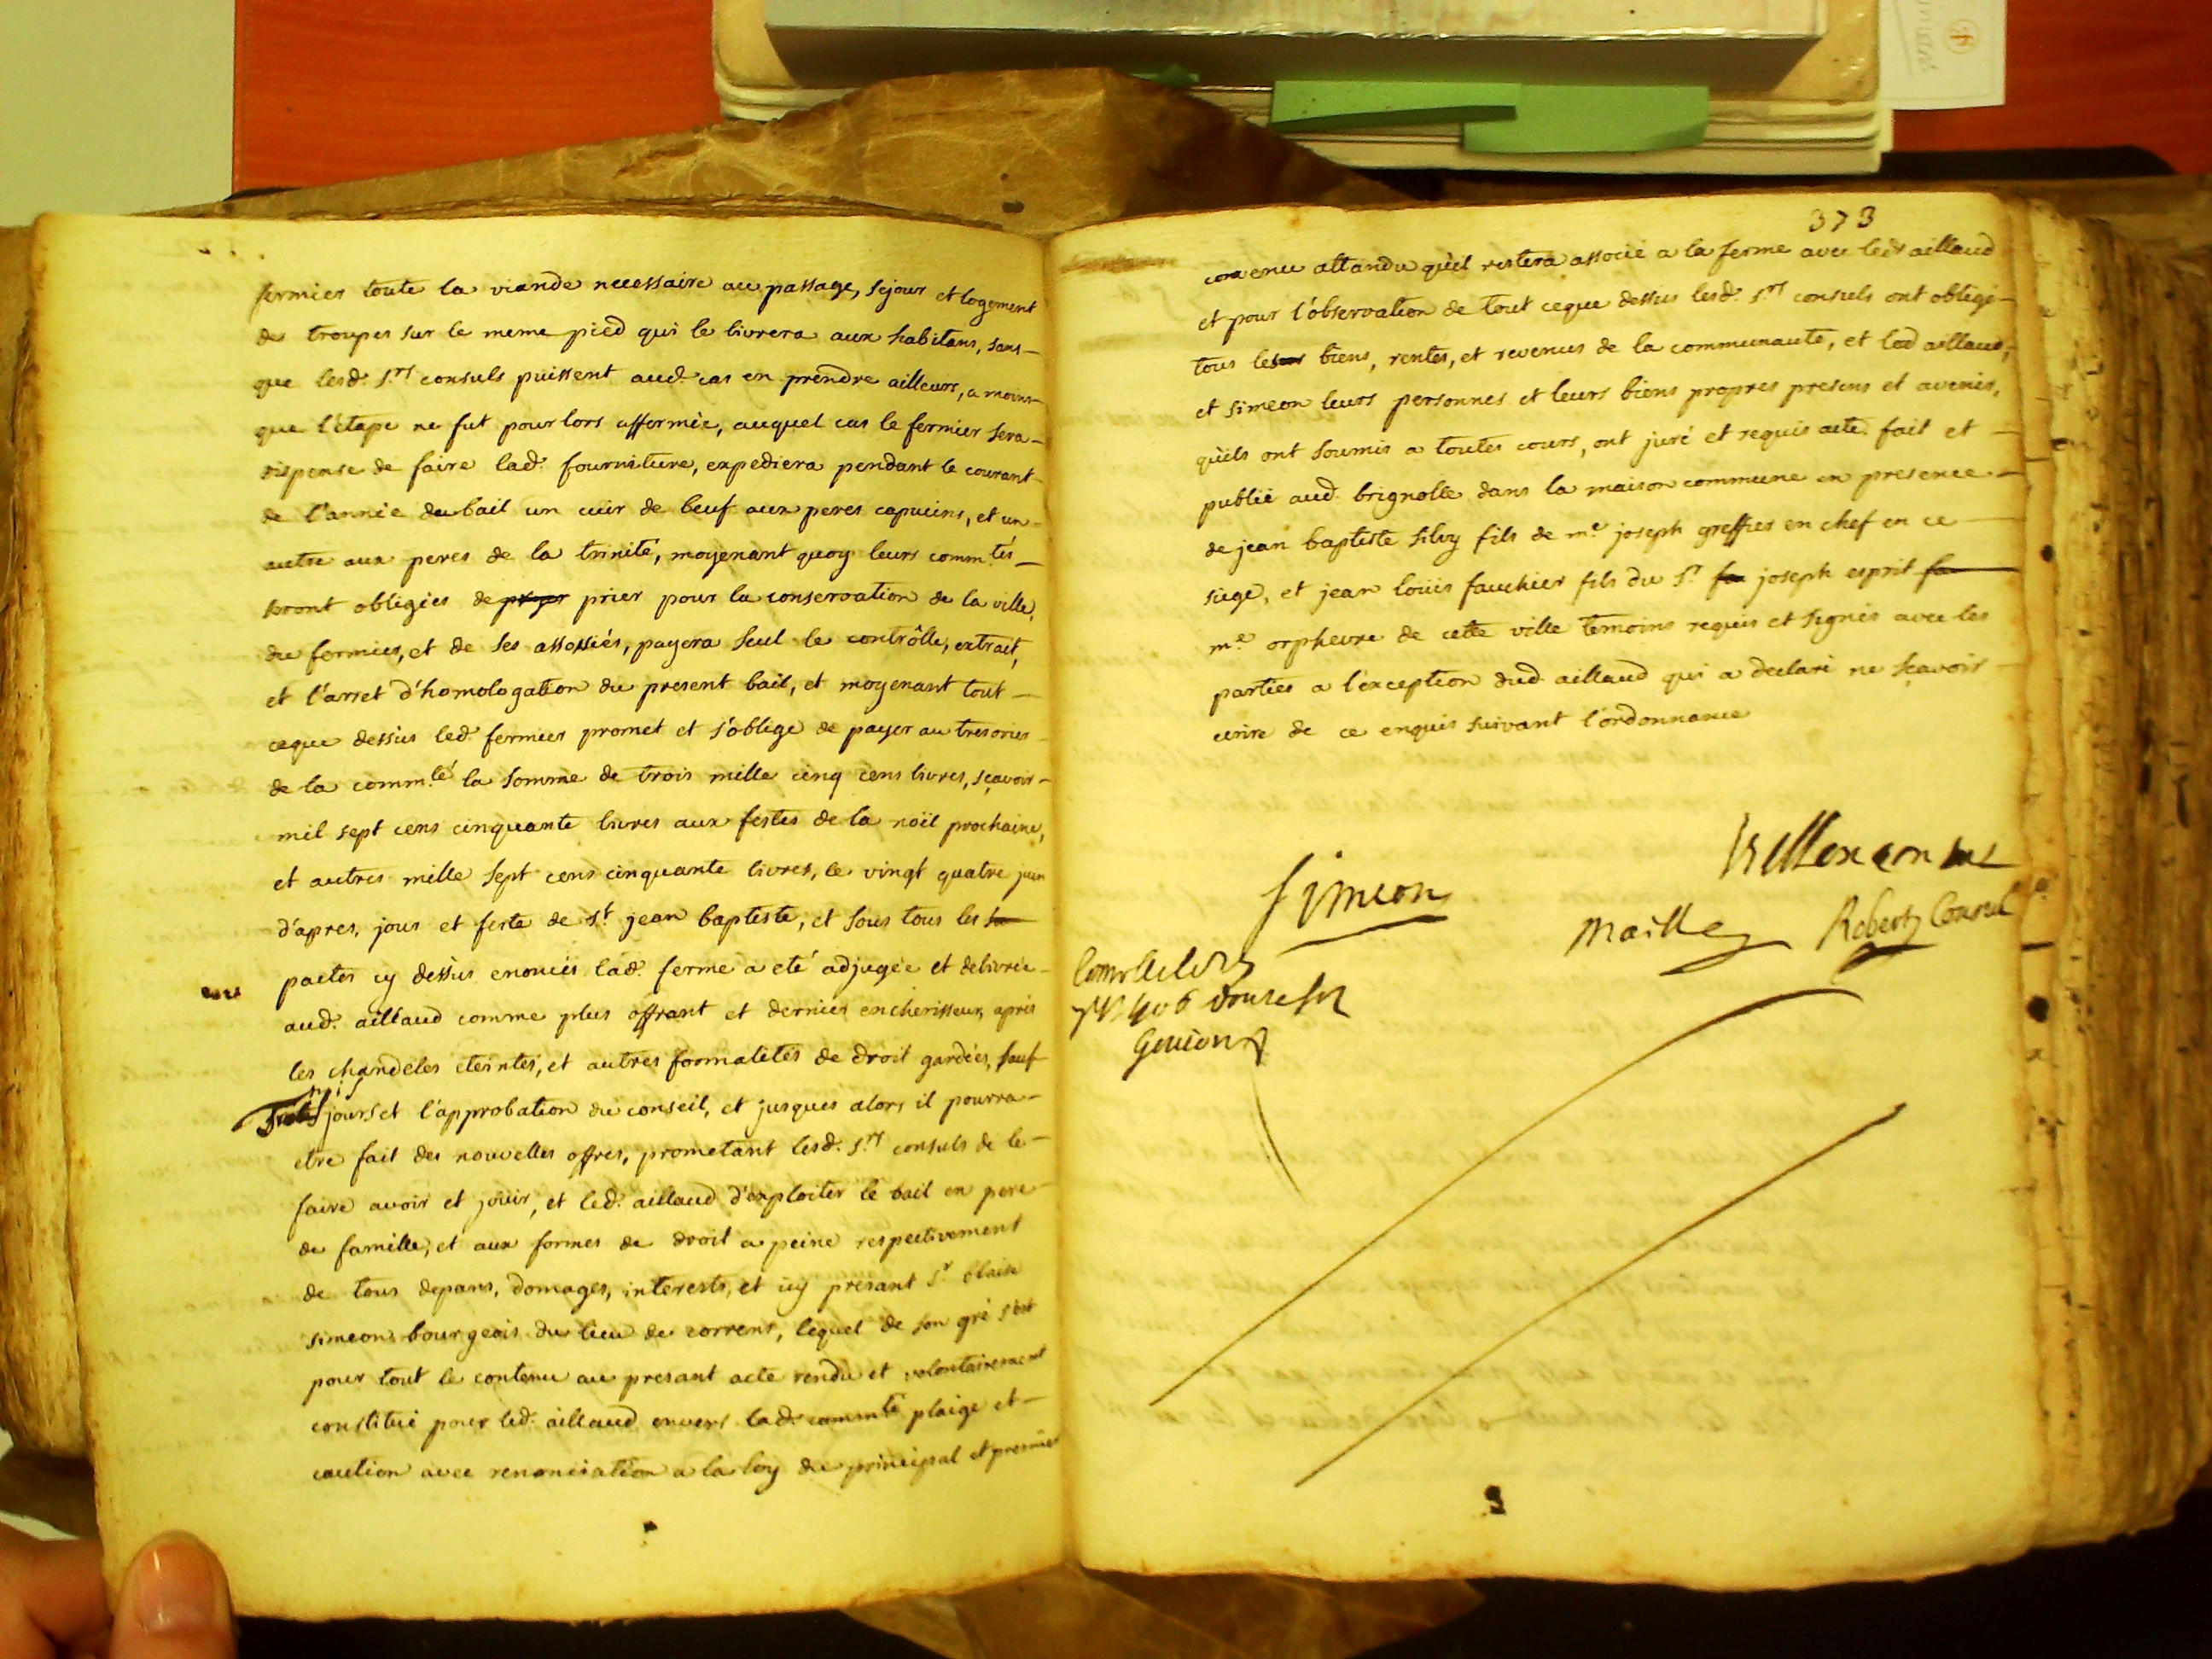 fermier toute la viande necessaire au passage, sejour et logement
des troupes sur le meme pied qui le livrera aux habitans, sans
que lesd. srs consuls puissent aud. cas en prendre ailleurs, a moins
que l'étape ne fut pour lors affermée, auquel cas le fermier sera
dispense de faire lad. fourniture, expediera pendant le courant
de l'année du bail un cuir de beuf aux peres capucins, et un
autre aux peres de la trinité, moyenant quoy leurs commtés
seront obligées de payer prier pour la conservation de la ville,
du fermier, et de ses assossiés, payera seul le contrôlle, extrait,
et l'arret d'homologation du present bail, et moyenant tout
ceque dessus led. fermier promet et s'oblige de payer au tresorier
de la commté la somme de trois mille cinq cens livres, sçavoir
mil sept cens cinquante livres aux festes de la noël prochaine,
et autres mille sept cens cinquante livres, le vingt quatre juin
d'apres, jour et feste de st jean baptiste, et sous tous les
pactes cy dessus enoncés lad. ferme a eté adjugée et delivrée
aud. aillaud comme plus offrant et dernier encherisseur, apres
les chandeles eteintes, et autres formalités de droit gardées, sauf
trois
jours et l'approbation du conseil, et jusques alors il pourra
etre fait des nouvelles offres, prometant lesd. srs consuls de le
faire avoir et jouir, et led. aillaud d'exploiter le bail en pere
de famille, et aux formes de droit a peine respectivement
de tous depans, domages, interests, et icy presant sr blaise
simeon bourgeois du lieu de correns, lequel de son gré s'est
pour tout le contenu au presant acte rendu et volontairement
constitué pour led. aillaud envers lad. commté plaige et
caution avec renonciation a la loy du principal et premier
373
convenu attandu qu'il restera associé a la ferme avec led aillaud
et pour l'observation de tout ceque dessus lesd. srs consuls ont obligé
tous les biens, rentes, et revenus de la communauté, et led aillaud,
et simeon leurs personnes et leurs biens propres presens et avenir,
qu'ils ont soumis a toutes cours, ont juré et requis acte. fait et
publié aud. brignolle dans la maison commune en presence
de jean baptiste silvy fils de me joseph greffier en chef en ce
siege, et jean louis fauchier fils du sr joseph esprit
me orphevre de cette ville temoins requis et signés avec les
parties a l'exception dud. aillaud qui a declaré ne sçavoir
ecrire de ce enquis suivant l'ordonnance
Simeon
Maille
Robert Consul